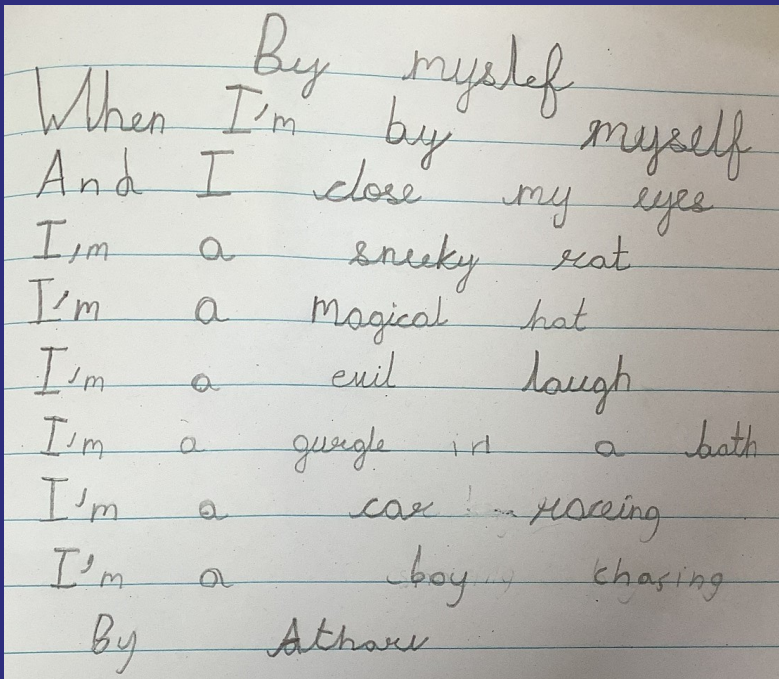 By myslef
When I'm by myself
And I close my eyes
I,m a sneeky rat
I'm a magical hat
I'm a evil laugh
I'm a gurgle in a bath
I'm a car raceing
I'm a boy chasing
By Atharv